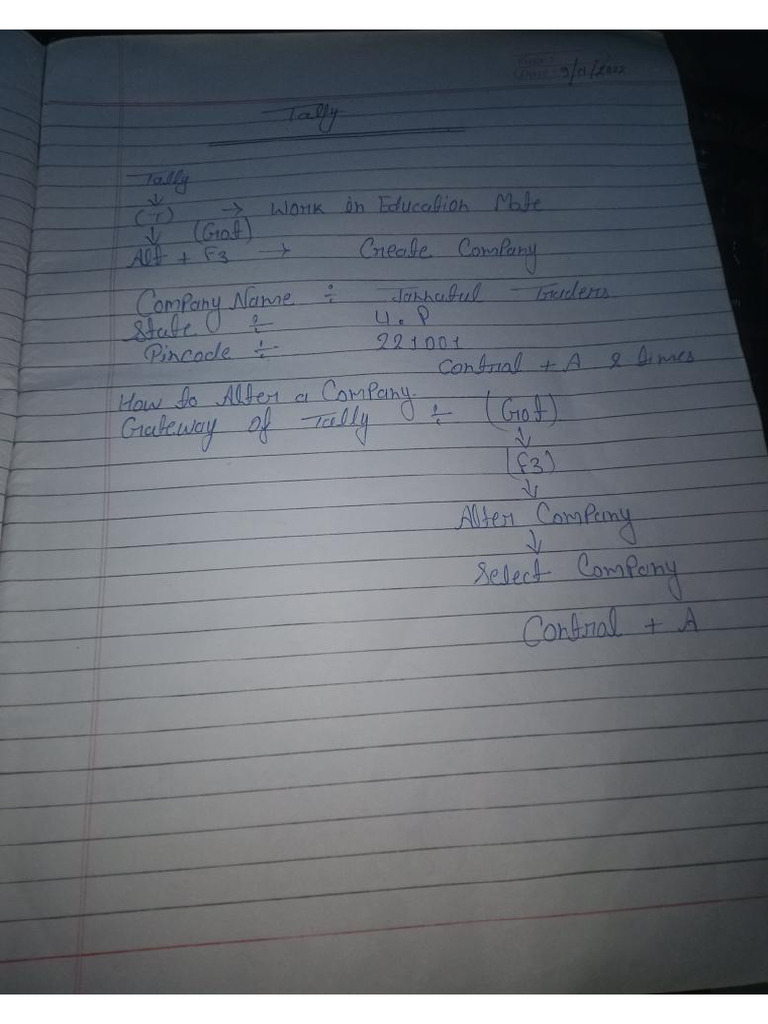 9/01/2022
Tally
Tally
↓
(T) → Work in Education Mode
↓ (Got)
Alt + F3 → Create Company
Company Name ÷ Jannatul Traders
State ÷ U.P
Pincode ÷ 221001
Control + A 2 times
How to Alter a Company.
Gateway of Tally ÷ (Got)
↓
(F3)
↓
Alter Company
↓
Select Company
Control + A